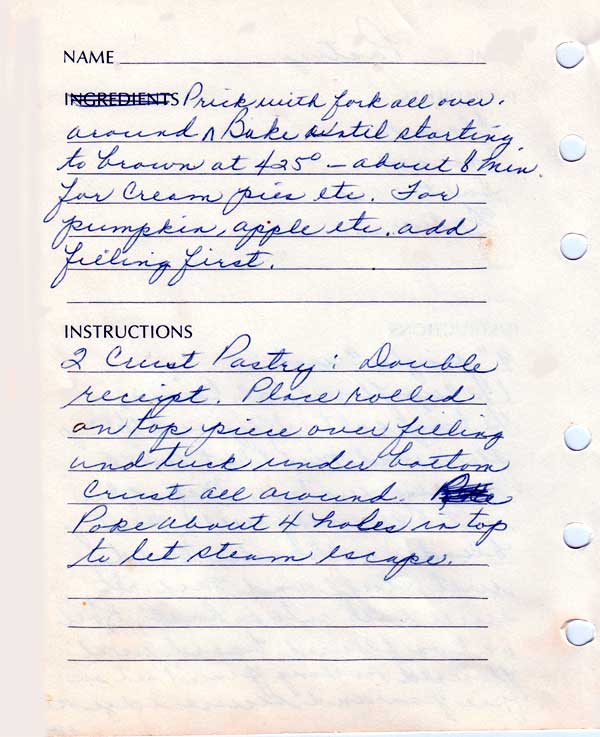 NAME
INGREDIENTS Prick with fork all over.
around ^ Bake until starting
to brown at 425° – about 8 min.
for Cream pies etc. For
pumpkin, apple etc. add
filling first.
INSTRUCTIONS
2 Crust Pastry: Double
receipt. Place rolled
on top piece over filling
and tuck under bottom
crust all around.
Poke about 4 holes in top
to let steam escape.